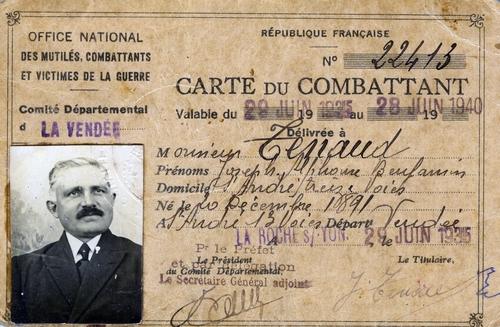 OFFICE NATIONAL
DES MUTILÉS, COMBATTANTS
ET VICTIMES DE LA GUERRE
Comité Départemental
d LA VENDÉE
RÉPUBLIQUE FRANÇAISE
N° 22413
CARTE DU COMBATTANT
Valable du 29 JUIN 1935 au 28 JUIN 1940
Délivrée à
Monsieur
Prénoms Joseph Alphonse Benjamin
Domicile St André Treize Voies
Né le 20 Décembre 1891
A St André 13 Voies Départt Vendée
A LA ROCHE S/YON, le 29 JUIN 1935
Pr le Préfet
Le Président
et par délégation
du Comité Départemental,
Le Secrétaire Général adjoint
Le Titulaire,